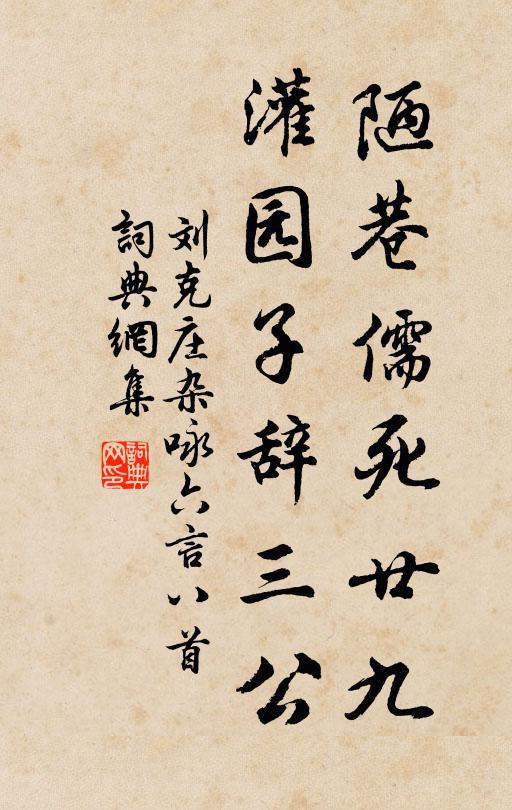 陋巷儒死廿九
灌园子辞三公
刘克庄杂咏六言八首
詞典網集
詞典网印